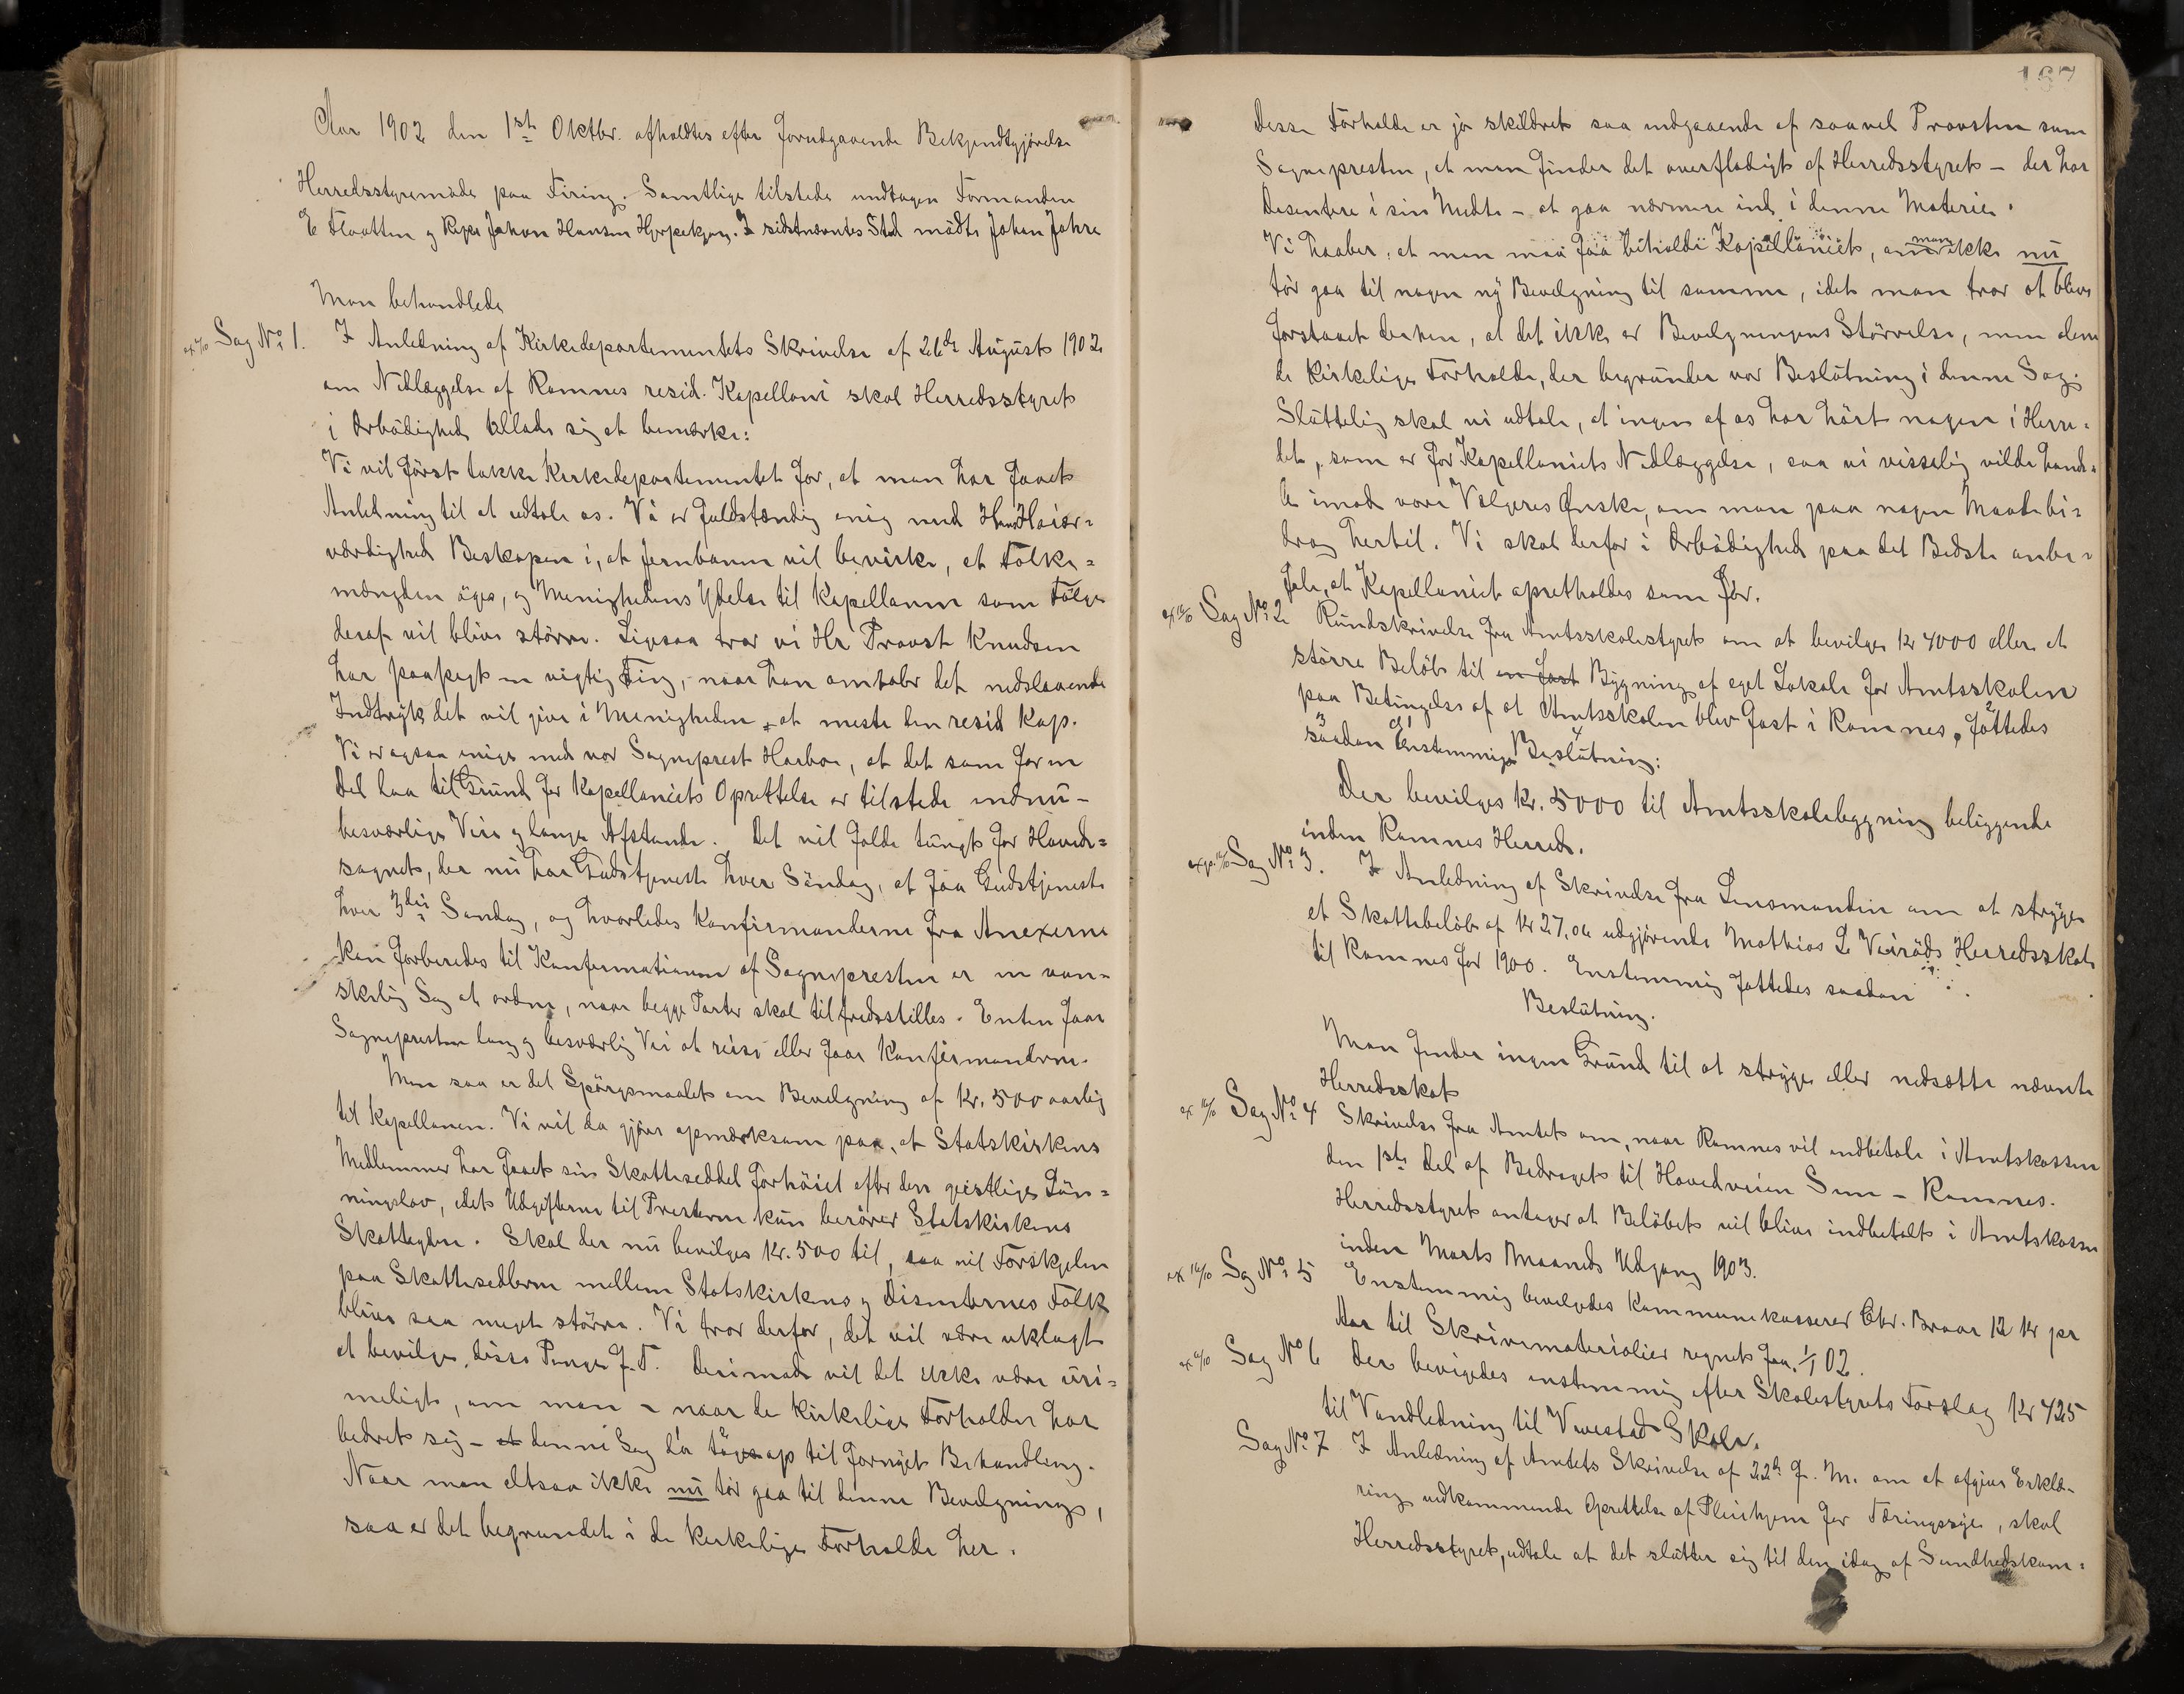 Aar 1902 den 1st Oktbr. afholdtes efter forudgaaende Bekjendtgjørelse
Herredsstyremøde paa Firing. Samtlige tilstede undtagen Formanden
E Flaatten og Repr Johan Hansen. I sidstnævntes Sted mødte Johan Jahre
Man behandlede
Sag No 1. I Anledning af Kirkedepartementets Skrivelse af 26de August 1902
om Nedlæggelse af Ramnes resid. Kapellani skal Herredsstyret
i Ærbødighed tillade sig at bemærke:
Vi vil først takke Kirkedepartementet for, at man har faaet
Anledning til at udtale os. Vi er fuldstændig enig med Hans Høiær=
værdighed Biskopen i, at Jernbanen vil bevirke, at Folke=
mængden øges, og Menighedens Ydelse til Kapellanen som Følge
deraf vil blive større. Ligesaa tror vi Hr Provst Knudsen
har paapegt en vigtig Ting, naar han omtaler det nedslaaende
Indtryk det vil give i Menigheden at miste den resid Kap.
Vi er ogsaa enige med vor Sogneprest Harboe, at det som for en
Del laa til Grund for Kapellaniets Oprettelse er tilstede endnu -
besværlige Veie og lange Afstande. Det vil falde tungt for Hoved=
sognet, der nu har Gudstjeneste hver Søndag, at faa Gudstjeneste
hver 3die Søndag, og hvorledes Konfirmanderne fra Anexerne
kan forberedes til Konfirmationen af Sognepresten er en van=
skelig Sag at ordne, naar begge Parter skal tilfredsstilles. Enten faar
Sognepresten lang og besværlig Vei at reise eller faar Konfirmanderne.
Men saa er det Spørgsmaalet om Bevilgning af Kr. 500 aarlig
til Kapellanen. Vi vil da gjøre opmærksom paa, at Statskirkens
Medlemmer har faaet sin Skatteseddel forhøiet efter den geistlige Løn=
ningslov, idet Udgifterne til Presterne kun berører Statskirkens
Skatteydere. Skal der nu bevilges Kr. 500 til, saa vil Forskjelen
paa Skattesedlerne mellem Statskirkens og Disenternes Folk
blive saa meget større. Vi tror derfor, det vil være uklogt
at bevilge disse Penge f. T. Derimod vil det ikke være uri=
meligt, om man - naar de kirkelige Forholder har
bedret sig - at denne Sag da tages op til fornyet Behandling.
Naar man altsaa ikke nu tør gaa til denne Bevilgning,
saa er det begrundet i de kirkelige Forholde her.
167
Disse Forholde er jo skildret saa indgaaende af saavel Provsten som
Sognepresten, at man finder det overflødigt af Herredsstyret - der har
Disentere i sin Midte - at gaa nærmere ind i denne Materie.
Vi haaber, at man maa faa beholde Kapellaniet, om man ikke nu
tør gaa til nogen ny Bevilgning til samme, idet man tror at blive
forstaaet derhen, at det ikke er Bevilgningens Størrelse, men alene
de kirkelige Forholde, der begrunder vor Beslutning i denne Sag.
Sluttelig skal vi udtale, at ingen af os har hørt nogen i Herre=
det, som er for Kapellaniets Nedlæggelse, saa vi visselig vilde hand=
le imod vore Vælgeres Ønske, om man paa nogen Maade bi=
drog hertil. Vi skal derfor i Ærbødighed paa det Bedste anbe=
fale, at Kapellaniet opretholdes som før.
Sag No 2 Rundskrivelse fra Amtsskolestyret om at bevilge Kr 4000 eller et
større Beløb til en fast Bygning af eget Lokale for Amtsskolen
paa Betingelse af at Amtsskolen blev fast i Ramnes, fattedes
saadan Enstemmige Beslutning:
Der bevilges Kr. 5000 til Amtsskolebygning beliggende
inden Ramnes Herred.
Sag No 3. I Anledning af Skrivelse fra Lensmanden om at stryge
et Skattebeløb af Kr 27,04 udgjørende Mathias L Veirøds Herredsskat
til Ramnes for 1900. Enstemmig fattedes saadan
Beslutning.
Man finder ingen Grund til at stryge eller nedsætte nævnte
Herredsskat
Sag No 4 Skrivelse fra Amtet om, naar Ramnes vil indbetale i Amtskassen
den 1ste Del af Bidraget til Hovedveien Sem - Ramnes.
Herredsstyret antager at Beløbet vil blive indbetalt i Amtskassen
inden Marts Maaneds Udgang 1903.
Sag No 5 Enstemmig bevilgedes Kommunekasserer Chr. Braar 12 Kr pr
Aar til Skrivematerialier regnet fra 1/1 02.
Sag No 6 Der bevigedes enstemmig efter Skolestyrets Forslag Kr 425
til Vandledning til Vivestad Skole.
Sag No 7 I Anledning af Amtets Skrivelse af 22de f. M. om at afgive Erklæ-
ring vedkommende Oprettelse af Pleiehjem for Tæringssyge, skal
Herredsstyret, udtale at det slutter sig til den idag af Sundhedskom=